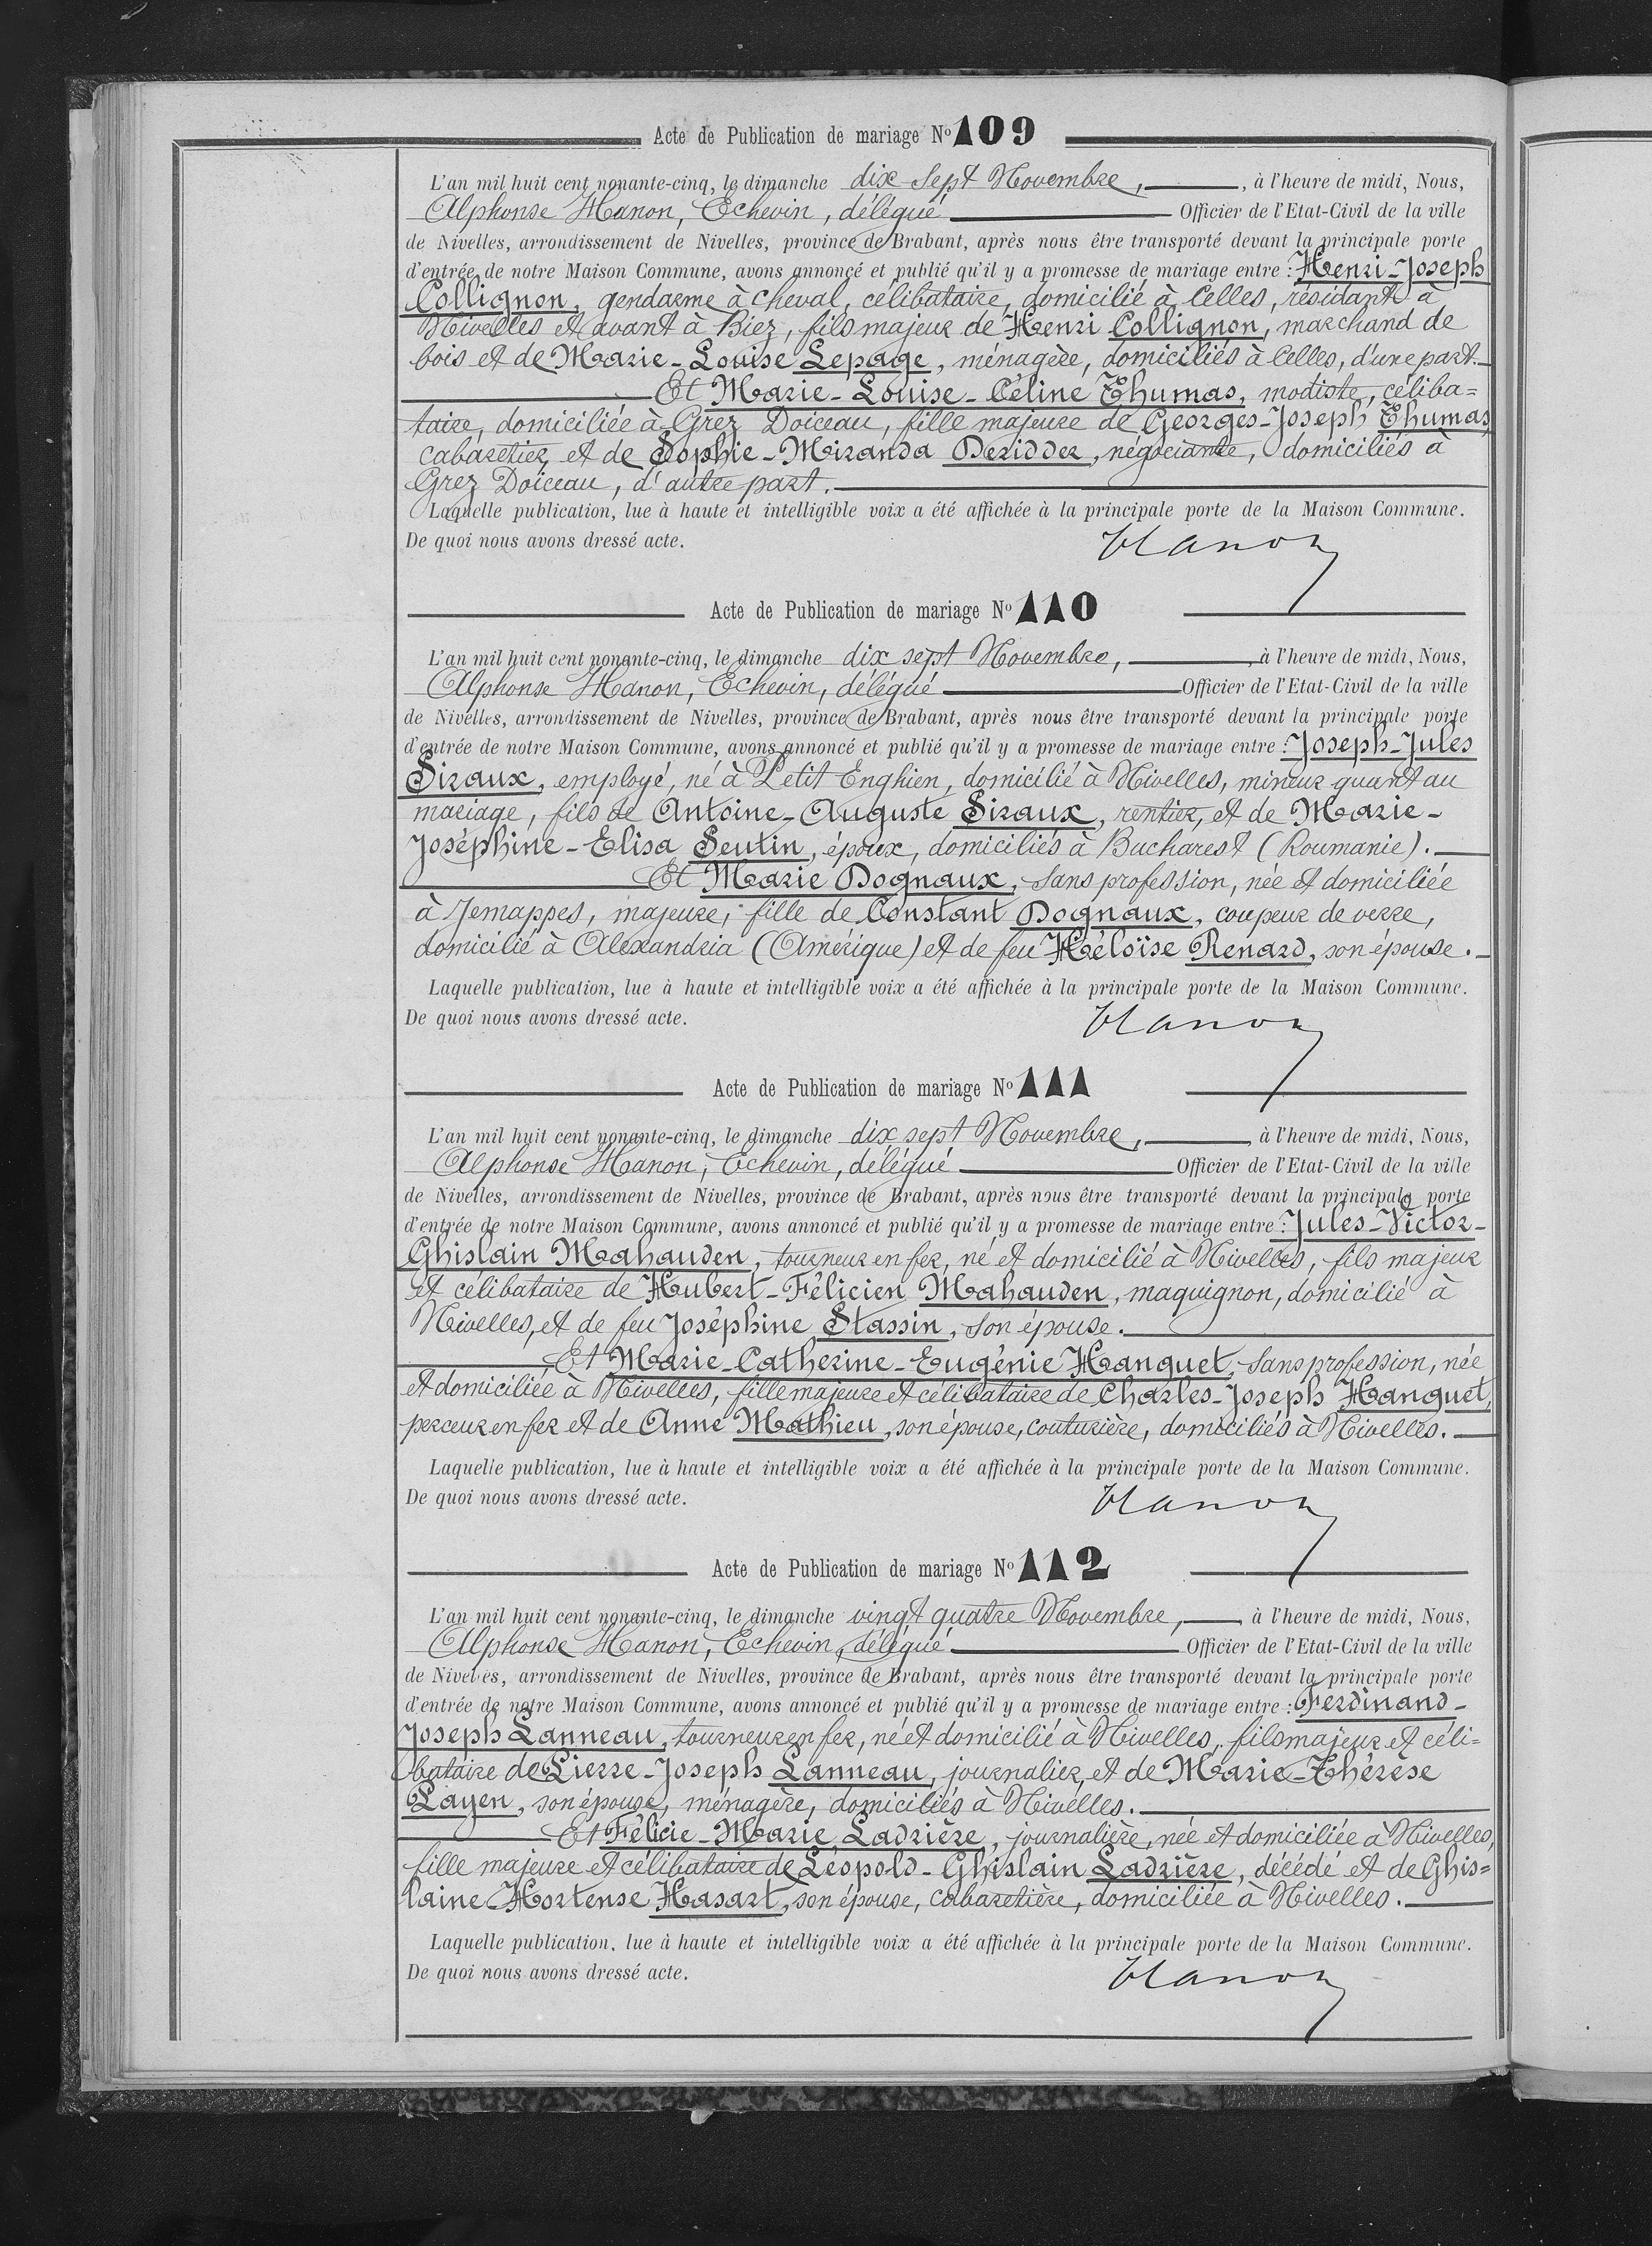 Acte de Publication de mariage Nº 109
L'an mil huit cent nonante-cinq, le dimanche dix sept Novembre, , à l'heure de midi, Nous,
Alphonse Hanon, Echevin, délégué Officier de l'Etat-Civil de la ville
de Nivelles, arrondissement de Nivelles, province de Brabant, après nous être transporté devant la principale porte
d'entrée de notre Maison Commune, avons annoncé et publié qu'il y a promesse de mariage entre : Henri-Joseph
Collignon, gendarme à cheval, célibataire, domicilié à Celles, résidant à
Nivelles et avant à Biez, fils majeur de Henri Collignon, marchand de
bois et de Marie-Louise Lepage, ménagère, domiciliés à Celles, d'une part.
Et Marie-Louise-Céline Thumas, modiste, céliba=
taire, domiciliée à Grez Doiceau, fille majeure de Georges-Joseph Thumas,
cabaretier, et de Sophie-Miranda Deridder, négociante, domiciliés à
Grez Doiceau, d'autre part.
Laquelle publication, lue à haute et intelligible voix a été affichée à la principale porte de la Maison Commune.
De quoi nous avons dressé acte.
Hanon
Acte de Publication de mariage Nº 110
L'an mil huit cent nonante-cinq, le dimanche dix sept Novembre, , à l'heure de midi, Nous,
Alphonse Hanon, Echevin, délégué Officier de l'Etat-Civil de la ville
de Nivelles, arrondissement de Nivelles, province de Brabant, après nous être transporté devant la principale porte
d'entrée de notre Maison Commune, avons annoncé et publié qu'il y a promesse de mariage entre : Joseph-Jules
Siraux, employé, né à Petit Enghien, domicilié à Nivelles, mineur quant au
mariage, fils de Antoine-Auguste Siraux, rentier, et de Marie-
Joséphine-Elisa Seutin, époux, domiciliés à Bucharest (Roumanie).
Et Marie Dognaux, sans profession, née et domiciliée
à Jemappes, majeure, fille de Constant Dognaux, coupeur de verre,
domicilié à Alexandria (Amérique) et de feu Héloïse Renard, son épouse.
Laquelle publication, lue à haute et intelligible voix a été affichée à la principale porte de la Maison Commune.
De quoi nous avons dressé acte.
Hanon
Acte de Publication de mariage Nº 111
L'an mil huit cent nonante-cinq, le dimanche dix sept Novembre, à l'heure de midi, Nous,
Alphonse Hanon, Echevin, délégué Officier de l'Etat-Civil de la ville
de Nivelles, arrondissement de Nivelles, province de Brabant, après nous être transporté devant la principale porte
d'entrée de notre Maison Commune, avons annoncé et publié qu'il y a promesse de mariage entre : Jules-Victor-
Ghislain Mahauden, tourneur en fer, né et domicilié à Nivelles, fils majeur
et célibataire de Hubert-Félicien Mahauden, maquignon, domicilié à
Nivelles, et de feu Joséphine Stassin, son épouse.
Et Marie-Catherine-Eugénie Hanquet, sans profession, née
et domiciliée à Nivelles, fille majeure et célibataire de Charles-Joseph Hanquet,
perceur en fer et de Anne Mathieu, son épouse, couturière, domiciliés à Nivelles.
Laquelle publication, lue à haute et intelligible voix a été affichée à la principale porte de la Maison Commune.
De quoi nous avons dressé acte.
Hanon
Acte de Publication de mariage Nº 112
L'an mil huit cent nonante-cinq, le dimanche vingt quatre Novembre, , à l'heure de midi, Nous,
Alphonse Hanon, Echevin, délégué Officier de l'Etat-Civil de la ville
de Nivelles, arrondissement de Nivelles, province de Brabant, après nous être transporté devant la principale porte
d'entrée de notre Maison Commune, avons annoncé et publié qu'il y a promesse de mariage entre : Ferdinand-
Joseph Lanneau, tourneur en fer, né et domicilié à Nivelles, fils majeur et céli=
bataire de Pierre-Joseph Lanneau, journalier, et de Marie-Thérèse
Payen, son épouse, ménagère, domiciliés à Nivelles.
Et Félicie-Marie Ladrière, journalière, née et domiciliée à Nivelles,
fille majeure et célibataire de Léopold-Ghislain Ladrière, décédé et de Ghis=
laine Hortense Hasart, son épouse, cabaretière, domiciliée à Nivelles.
Laquelle publication, lue à haute et intelligible voix a été affichée à la principale porte de la Maison Commune.
De quoi nous avons dressé acte.
Hanon